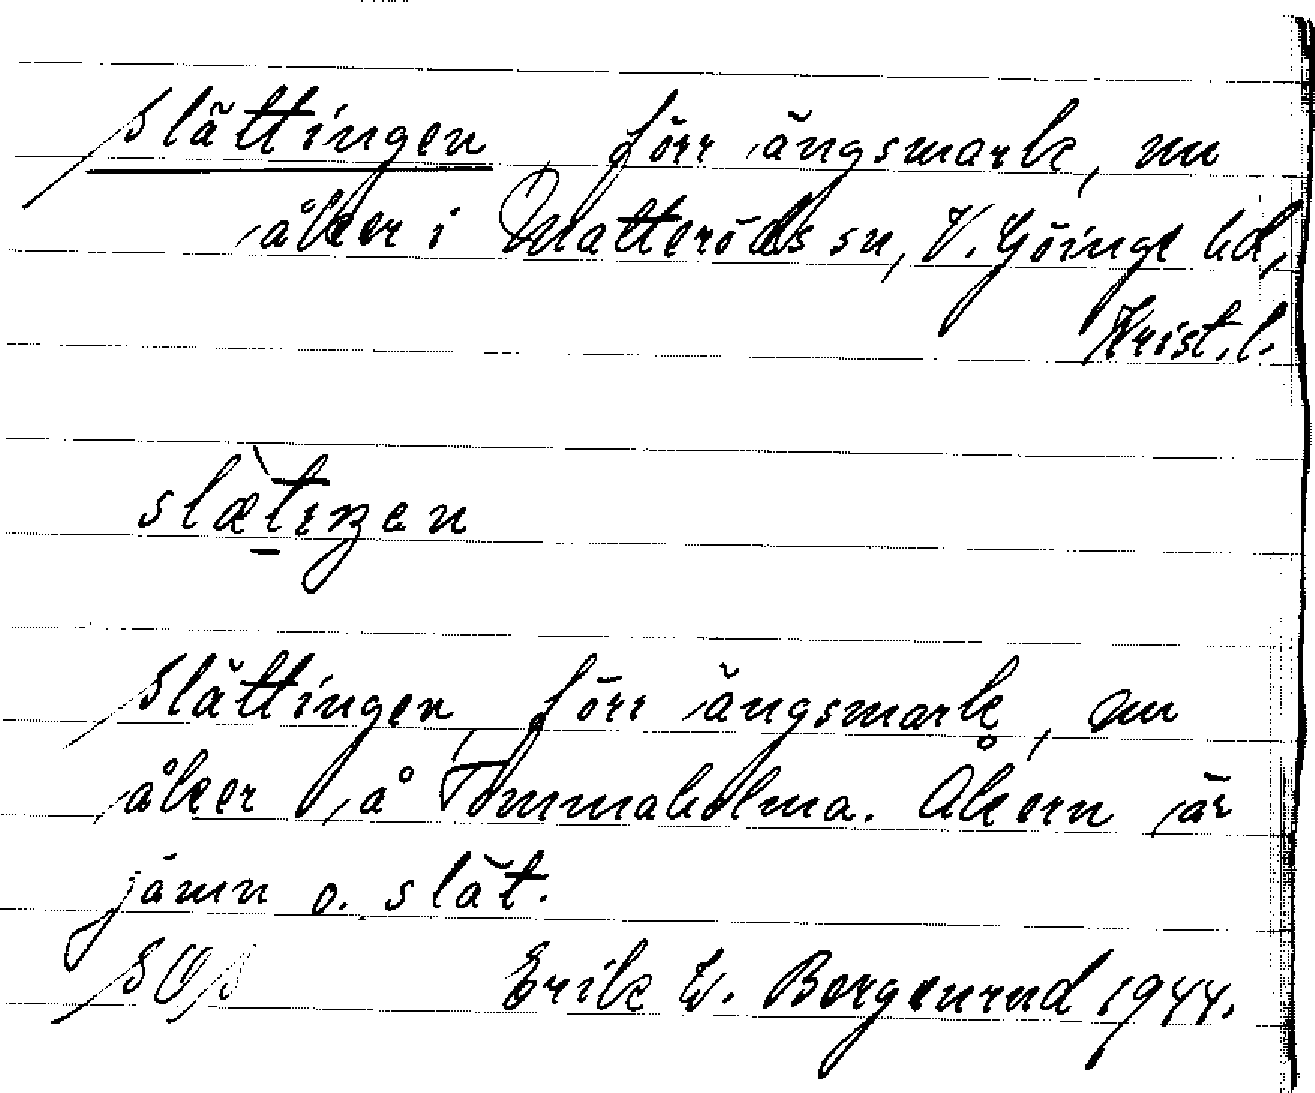 Slättingen, förr ängsmark, nu
åker i Matteröds sn, V. Göinge hd,
Krist. l.
slæ̀tıŋen
Slättingen, förr ängsmark, nu
åker, å Tommaholma. Åkern är
jämn o. slät.
SOS Erik W. Bergenrud 1944.